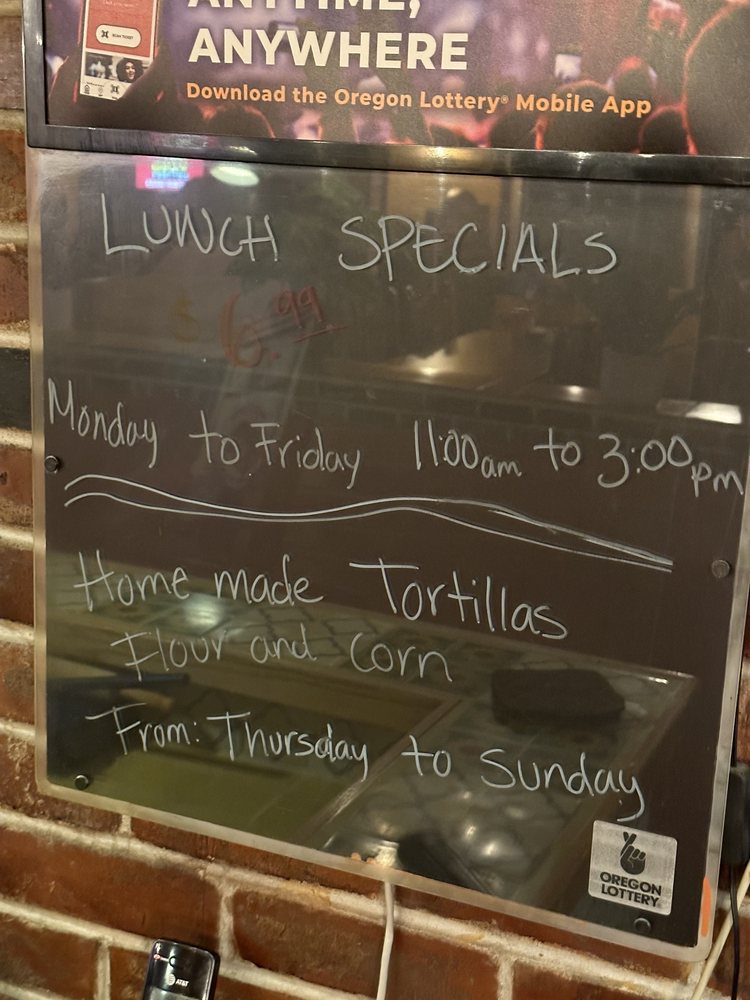 ANYTIME,
ANYWHERE
Download the Oregon Lottery® Mobile App
LUNCH SPECIALS
$ 6.99
Monday to Friday 11:00am to 3:00pm
Home made Tortillas
Flour and corn
From: Thursday to Sunday
OREGON
LOTTERY
AT&T